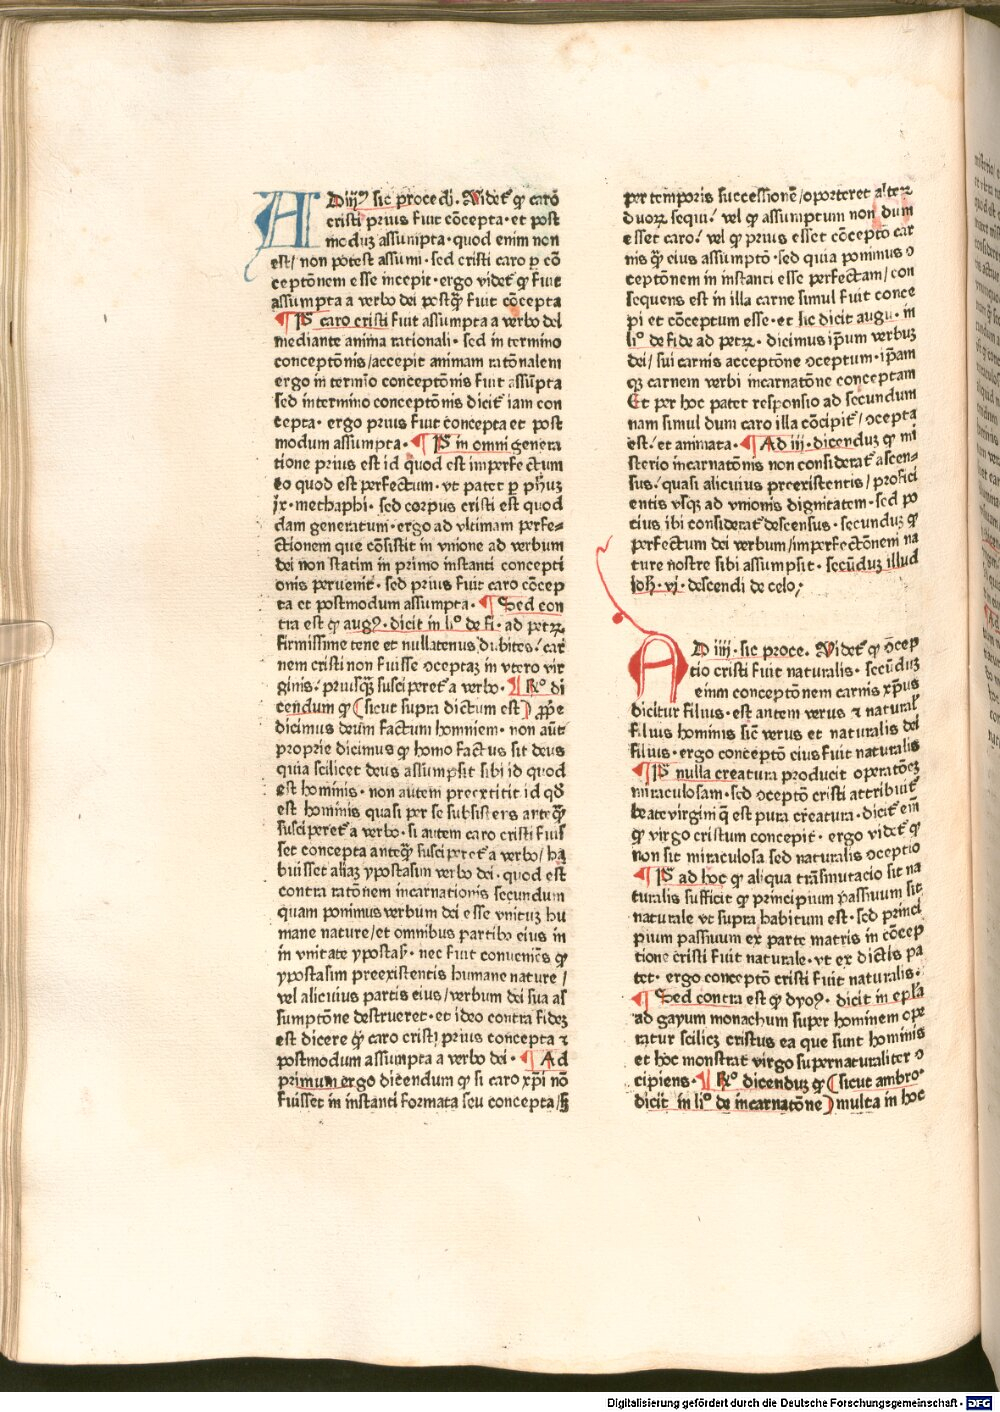 AD iij⁹ sic procedit̃. Videt̃ qꝫ carõ
cristi prius fuit cõcepta · et post
moduꝫ assumpta · quod enim non
est/ non potest assumi · sed cristi caro ꝑ cõ
ceptõnem esse incepit · ergo videt̃ qꝫ fuit
assumpta a verbo dei postqꝫ̃ fuit cõcepta
¶ P̃ caro cristi fuit assumpta a verbo dei
mediante anima rationali · sed in termino
conceptõnis/accepit animam ratõnalem
ergo in termĩo conceptõnis fuit assũpta
sed in termino conceptõnis dicit̃ iam con
cepta · ergo prius fuit concepta et post
modum assumpta · ¶ P̃ in omni genera
tione prius est id quod est imperfectum
eo quod est perfectum · vt patet ꝑ ph̃uꝫ
ix · methaphi · sed corpus cristi est quod
dam generatum · ergo ad vltimam perfe⸗
ctionem que cõsistit in vnione ad verbum
dei non statim in primo instanti concepti
onis peruenit · sed prius fuit caro cõcep
ta et postmodum assumpta · ¶ Sed con
tra est qꝫ aug⁹ · dicit in li° de fi · ad petꝝ
firmissime tene et nullatenus dubites/ car
nem cristi non fuisse ↄceptaꝫ in vtero vir
ginis/ priusqꝫ̃ susciperet̃ a verbo · ¶ R° di
cendum qꝫ (sicut supra dictum est) ꝓpͥe
dicimus deum factum hominem · non aũt
proprie dicimus qꝫ homo factus sit deus
quia scilicet deus assumpsit sibi id quod
est hominis · non autem preextitit id qd̃
est hominis quasi per se subsistens anteqꝫ̃
susciperet̃ a verbo · si autem caro cristi fuis
set concepta anteqꝫ̃ susciperet̃ a verbo/ ha
buisset aliaꝫ ypostasim verbo dei · quod est
contra ratõnem incarnationis secundum
quam ponimus verbum dei esse vnituꝫ hu
mane nature/et omnibus partibꝰ eius in
in vnitate ypostaſ̃ · nec fuit conueniẽs qꝫ
ypostasim preexistentis humane nature /
vel alicuius partis eius/verbum dei sua as
sumptõne destrueret · et ideo contra fideꝫ
est dicere qꝫ̃ caro cristi prius concepta ⁊
postmodum assumpta a verbo dei · ¶ Ad
primum ergo dicendum qꝫ si caro xp̃i nõ
fuisset in instanti formata seu concepta/ sꝫ
per temporis successionẽ/oporteret alteꝝ
duoꝝ sequi/ vel qꝫ assumptum non dum
esset caro/ vel qꝫ prius esset cõceptõ car
nis qꝫ̃ eius assumptõ · sed quia ponimus ↄ
ceptõnem in instanti esse perfectam/ con
sequens est in illa carne simul fuit conce
pi et cõceptum esse · et sic dicit augu · in
li° de fide ad petꝝ · dicimus ip̃um verbuꝫ
dei/ sui carnis acceptõne ↄceptum · ip̃am
qꝫ carnem verbi incarnatõne conceptam
Et per hoc patet responsio ad secundum
nam simul dum caro illa cõcipit̃/ ↄcepta
est/ et animata · ¶ Ad iij · dicenduꝫ qꝫ mi
sterio incarnatõnis non considerat̃ ascen⸗
sus/ quasi alicuius preexistentis/ profici
entis vsqꝫ ad vnionis dignitatem · sed po
tius ibi considerat̃ descensus · secunduꝫ qꝫ
perfectum dei verbum/imperfectõnem na
ture nostre sibi assumpsit · secũduꝫ illud
Joh̃ · vj · descendi de celo;
AD iiij · sic proce. Videt̃ qꝫ ↄcep
tio cristi fuit naturalis · secũduꝫ
enim conceptõnem carnis xp̃us
dicitur filius · est autem verus ⁊ natural̃
filius hominis sic̃ verus et naturalis dei
filius · ergo conceptõ eius fuit naturalis
¶ P̃ nulla creatura producit operatõeꝫ
miraculosam · sed ↄceptõ cristi attribuit̃
beate virgini q̃ est pura creatura · dicit̃ eñ
qꝫ virgo cristum concepit · ergo videt̃ qꝫ
non sit miraculosa sed naturalis ↄceptio
¶ P̃ ad hoc qꝫ aliqua trãsmutacio sit na
turalis sufficit qꝫ principium passiuum sit
naturale vt supra habitum est · sed princi
pium passiuum ex parte matris in cõcep
tione cristi fuit naturale · vt ex dictis pa
tet · ergo conceptõ cristi fuit naturalis ·
¶ Sed contra est qꝫ dyo⁹ · dicit in ep̃la
ad gayum monachum super hominem ope
ratur scilicꝫ cristus ea que sunt hominis
et hoc monstrat virgo supernaturaliter ↄ
cipiens · ¶ R° dicenduꝫ qꝫ (sicut ambro⸗
dicit in li° de incarnatõne) multa in hoc
Digitalisierung gefördert durch die Deutsche Forschungsgemeinschaft - DFG